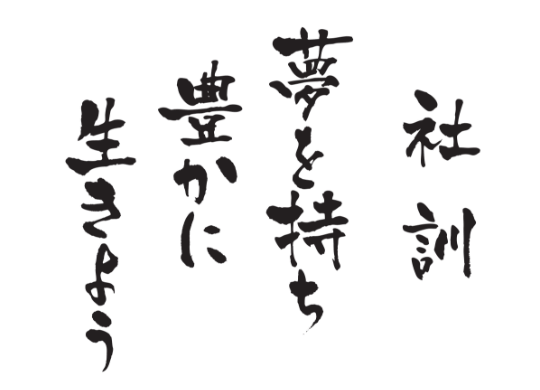 社訓
夢を持ち
豊かに
生きよう